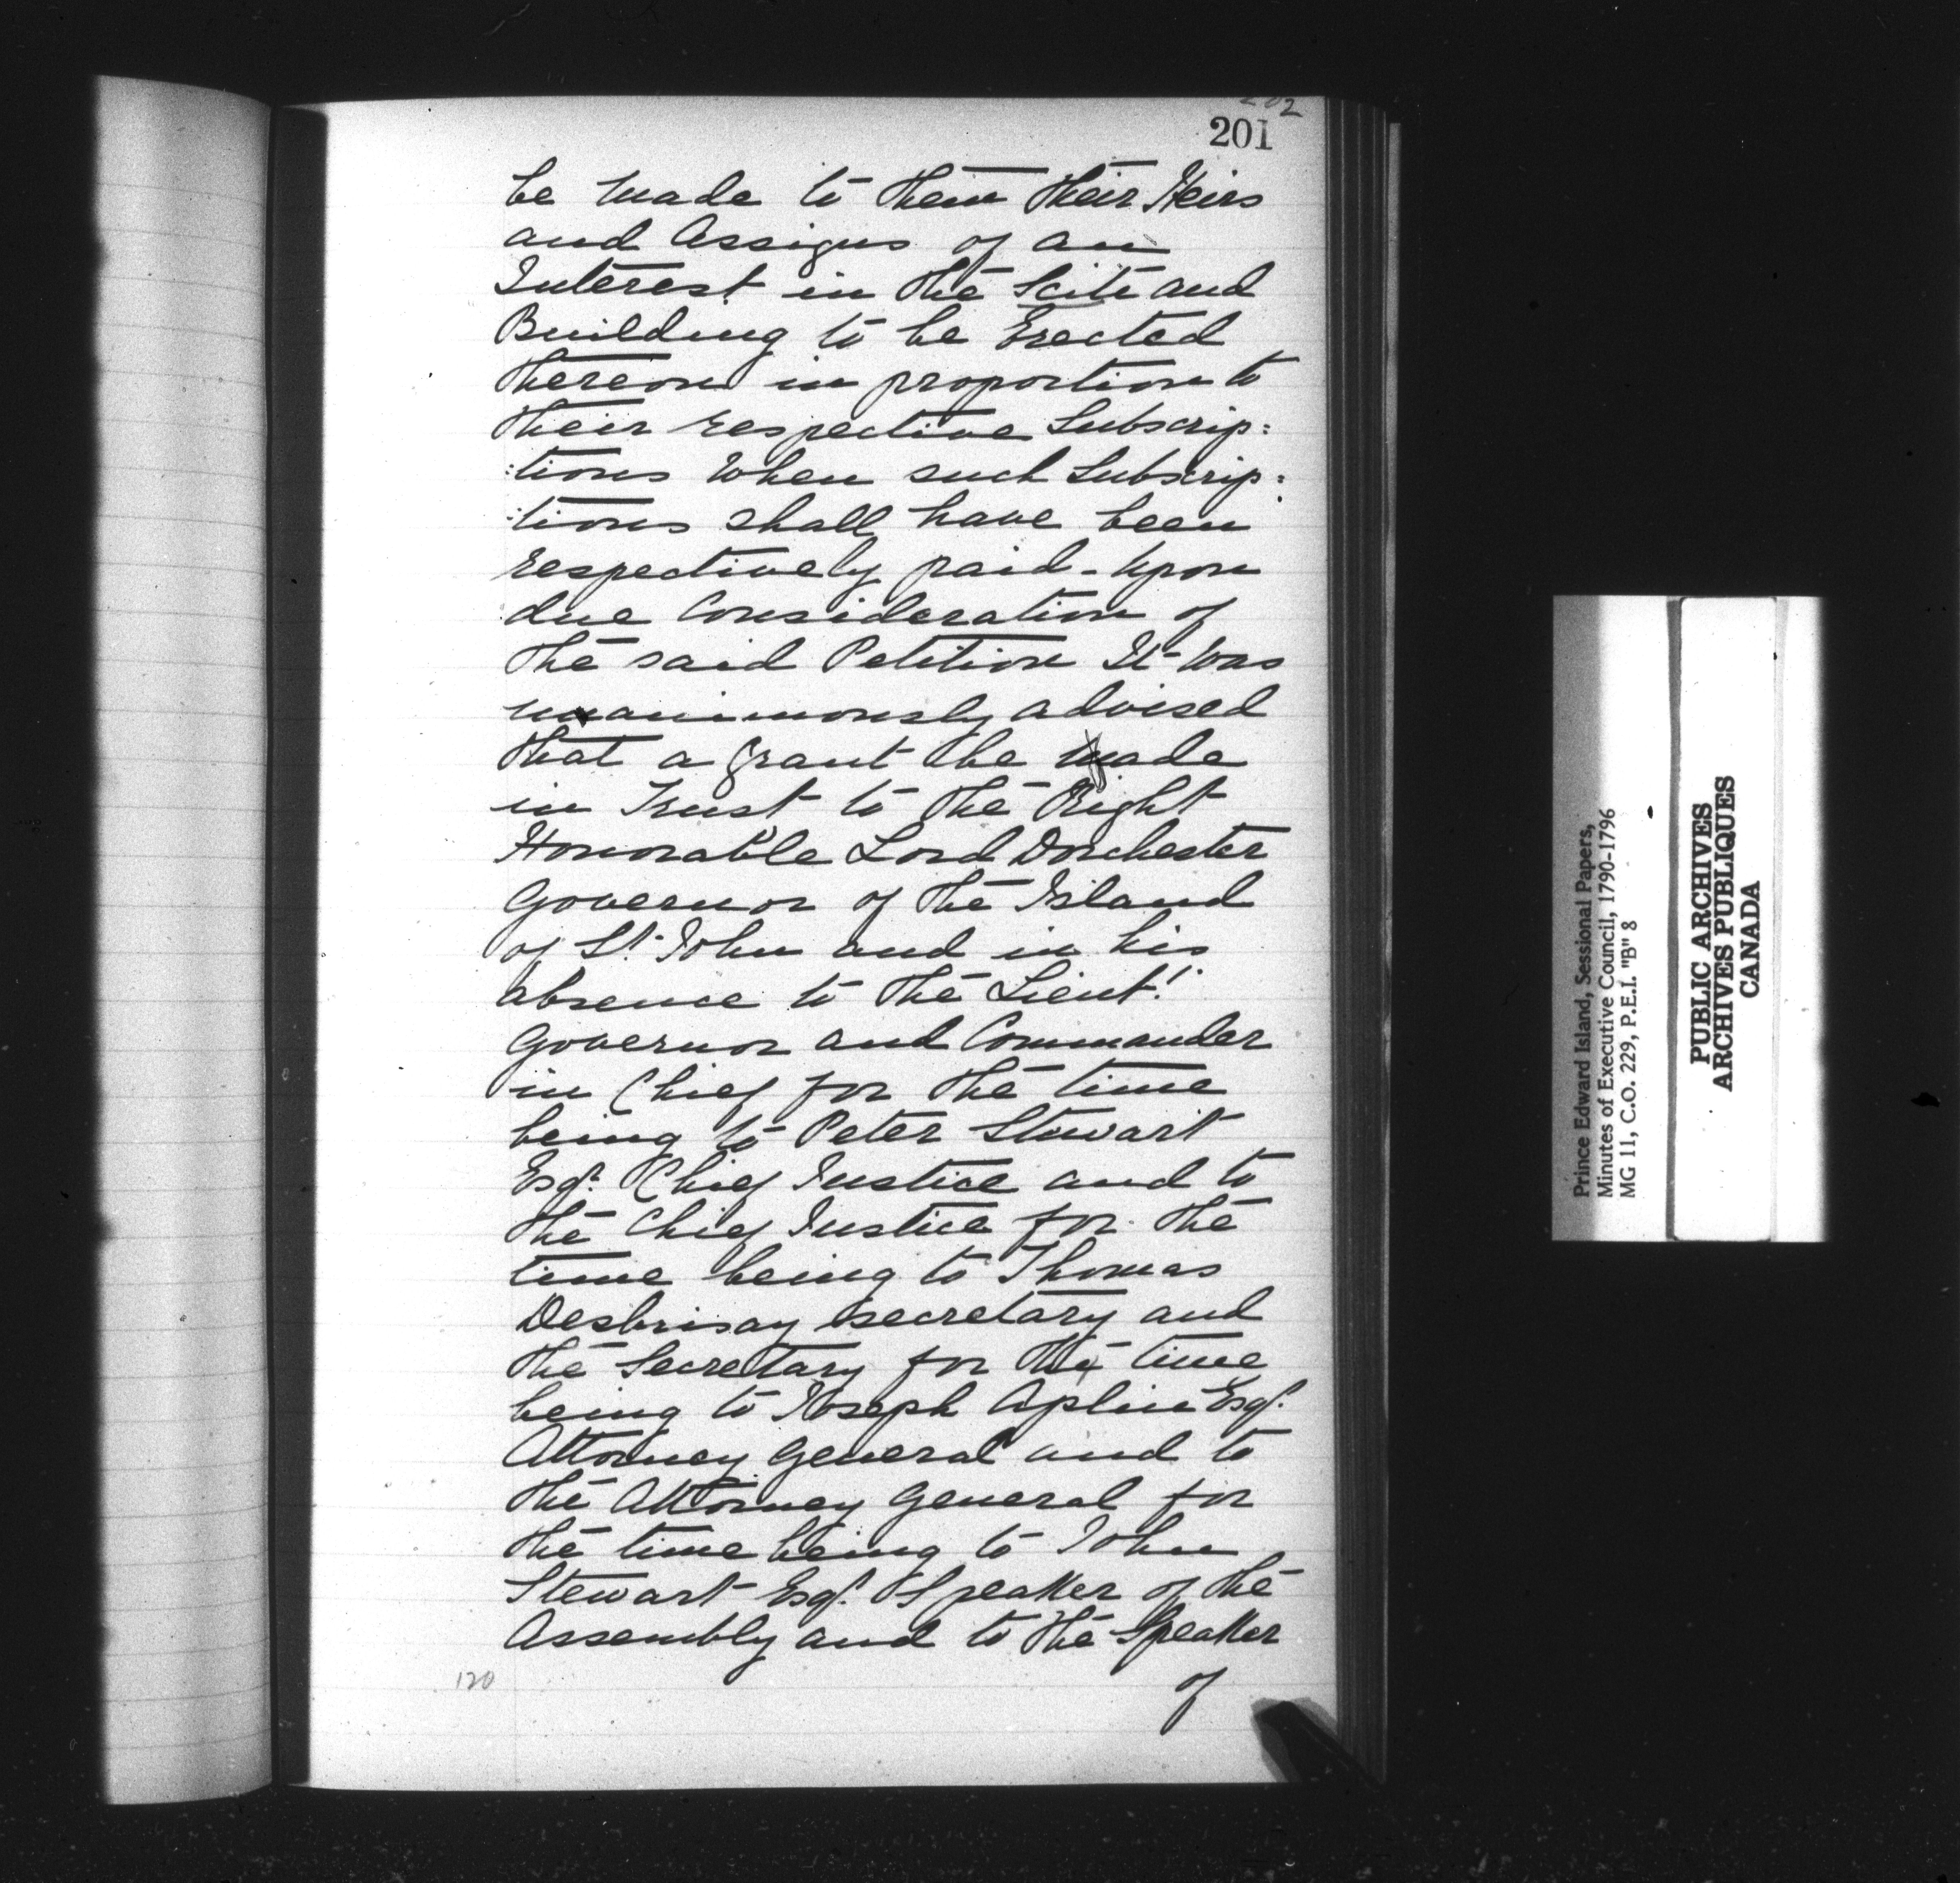 202
201
be made to them their Heirs
and Assigns of an
Interest in the Scite and
Building to be Erected
thereon in proportion to
their respective Subscrip:
:tions when such Subscrip:
:tions shall have been
respectively paid - Upon
due Consideration of
the said Petition It was
unanimously advised
that a Grant be made
in Trust to the Right
Honorable Lord Dorchester
Governor of the Island
of St. John and in his
absence to the Lieut.
Governor and Commander
in Chief for the time
being to Peter Stewart
Esqr. Chief Justice and to
the Chief Justice for the
time being to Thomas
Desbrisay Secretary and
the Secretary for the time
being to Joseph Aplin Esqr.
Attorney General and to
the Attorney General for
the time being to John
Stewart Esqr. Speaker of the
Assembly and to the Speaker
of
120
Prince Edward Island, Sessional Papers,
Minutes of Executive Council, 1790-1796
MG 11, C.O. 229, P.E.I. "B" 8
PUBLIC ARCHIVES
ARCHIVES PUBLIQUES
CANADA